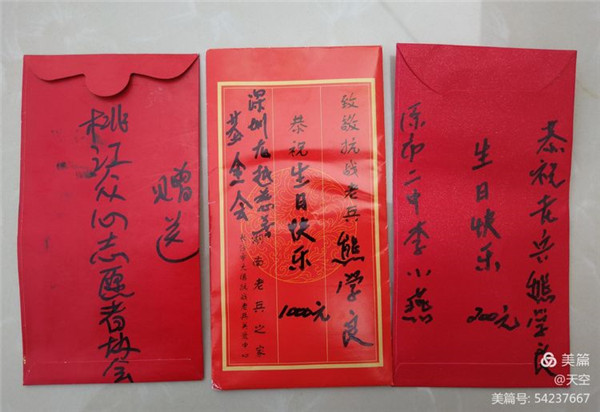 桃江众心志愿者协会
赠送
致敬抗战老兵熊学良
恭祝生日快乐
1000元
深圳龙越慈善
基金会
湖南老兵之家
恭祝老兵熊学良
生日快乐
200元
李小燕
美篇
@天空
美篇号: 54237667